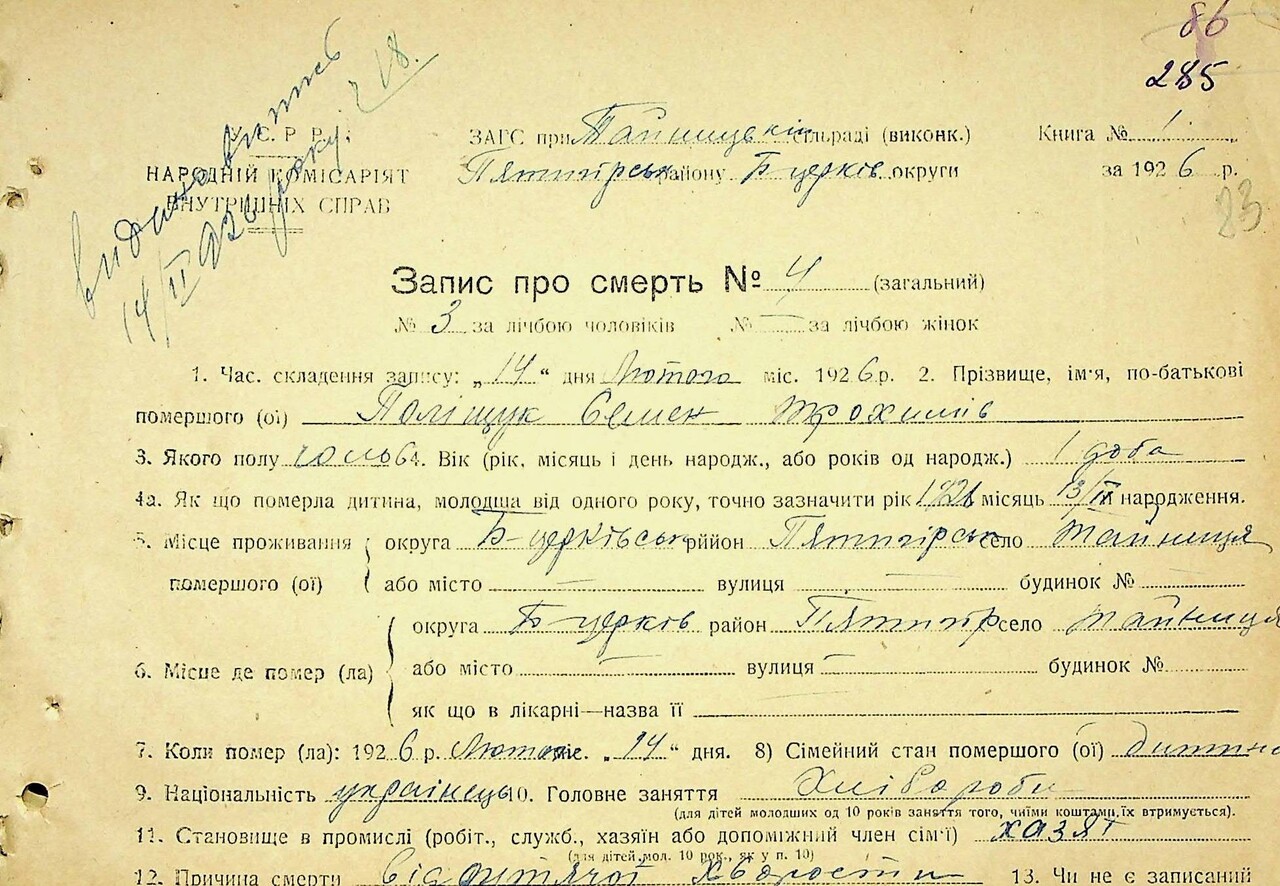 86
285
видано витяг
14/II 1926 року. 218.
У.С.Р.Р.
НАРОДНІЙ КОМІСАРІЯТ
ВНУТРІШНІХ СПРАВ
ЗАГС при Тайницькій сільраді (виконк.)
Пятигірськ району Б-церків округи
Книга № 1
за 1926 р.
83
Запис про смерть № 4 (загальний)
№ 3 за лічбою чоловіків № — за лічбою жінок
1. Час. складення запису: „14“ дня Лютого міс. 1926 р. 2. Прізвище, ім'я, по-батькові
помершого (ої) Поліщук Семен Трохимів
3. Якого полу чолов 4. Вік (рік, місяць і день народж., або років од народж.) 1 доба
4а. Як що померла дитина, молодша від одного року, точно зазначити рік 1926 місяць 13/II народження.
5. Місце проживання помершого (ої) округа Б-церківськ рййон Пятигірськ село Тайниця
або місто — вулиця — будинок № —
6. Місце де помер (ла) округа Б-церків район Пятигір село Тайниця
або місто — вулиця — будинок №
як що в лікарні—назва її
7. Коли помер (ла): 1926 р. Лютого міс. „14“ дня. 8) Сімейний стан помершого (ої) дитина
9. Національність українець 10. Головне заняття Хлібороби
(для дітей молодших од 10 років заняття того, чиїми коштами їх втримується).
11. Становище в промислі (робіт., служб., хазяїн або допоміжний член сім'ї) хазяї
(для дітей мол. 10 рок., як у п. 10)
12. Причина смерти від дитячої хворости 13. Чи не є записаний